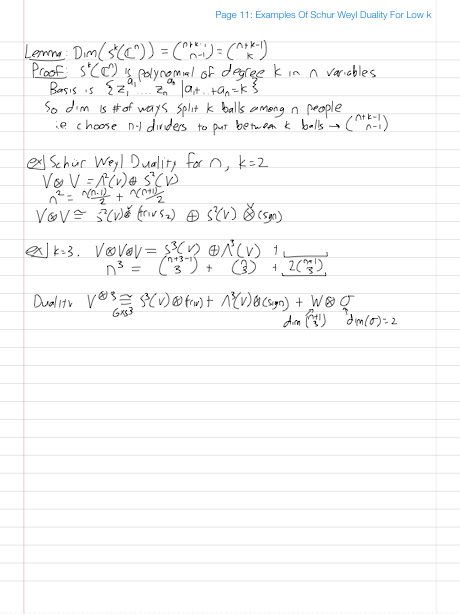 Page 11: Examples Of Schur Weyl Duality For Low k
Lemma: Dim(S^k(ℂ^n)) = (n+k-1 choose n-1) = (n+k-1 choose k)
Proof: S^k(ℂ^n) is polynomial of degree k in n variables
Basis is {z_1^{a_1} .... z_n^{a_n} | a_1+..+a_n = k}
So dim is # of ways split k balls among n people
i.e choose n-1 dividers to put between k balls → (n+k-1 choose n-1)
ex] Schur Weyl Duality for n, k=2
V⊗V = Λ²(V) ⊕ S²(V)
n² = n(n-1)/2 + n(n+1)/2
V⊗V ≅ S²(V)⊗(triv S_2) ⊕ S²(V)⊗(sgn)
ex] k=3. V⊗V⊗V = S³(V) ⊕ Λ³(V) +
n³ = (n+3-1 choose 3) + (n choose 3) + 2(n+1 choose 3)
Duality V^{⊗3} ≅ S³(V)⊗(triv) + Λ³(V)⊗(sgn) + W⊗σ
G×S3
dim (n+1 choose 3) dim(σ)=2